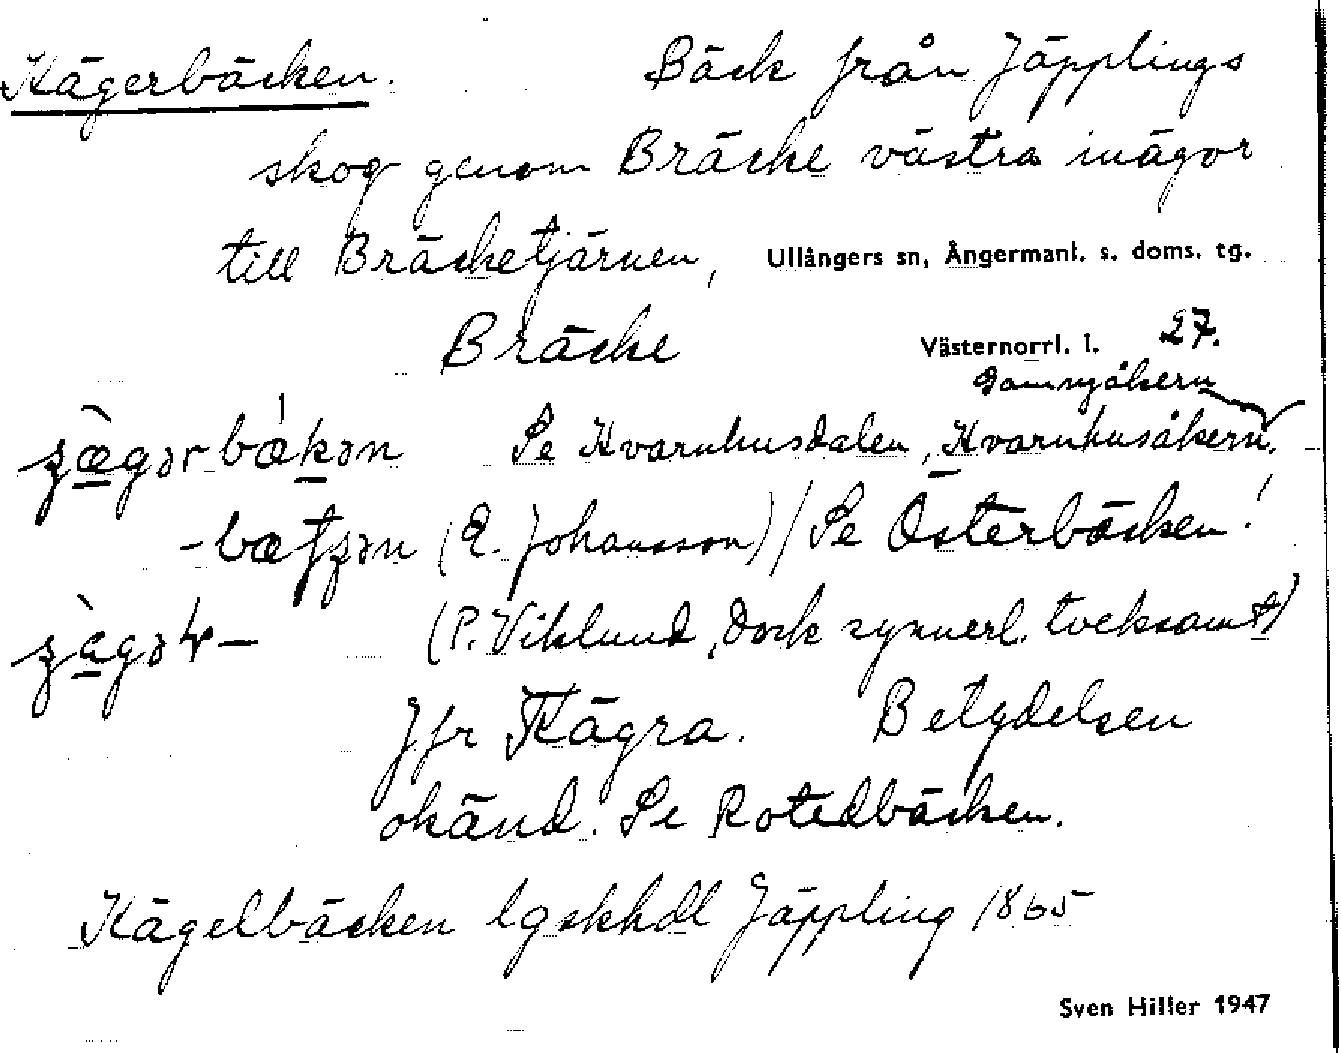 Kägerbäcken. Bäck från Jäpplings
skog genom Bräcke västra inägor
till Bräcketjärnen, Ullångers sn, Ångermanl. s. doms. tg.
Bräcke Västernorrl. l. 27.
Damnyåkern
Se Kvarnhusdalen, Kvarnhusåkern.
(E. Johansson) / Se Österbäcken!
(P. Viklund, dock synnerl. tveksamt)
Jfr Kägra. Betydelsen
okänd. Se Rotedbäcken.
Kägelbäcken lgskhdl Jäppling 1865
Sven Hiller 1947